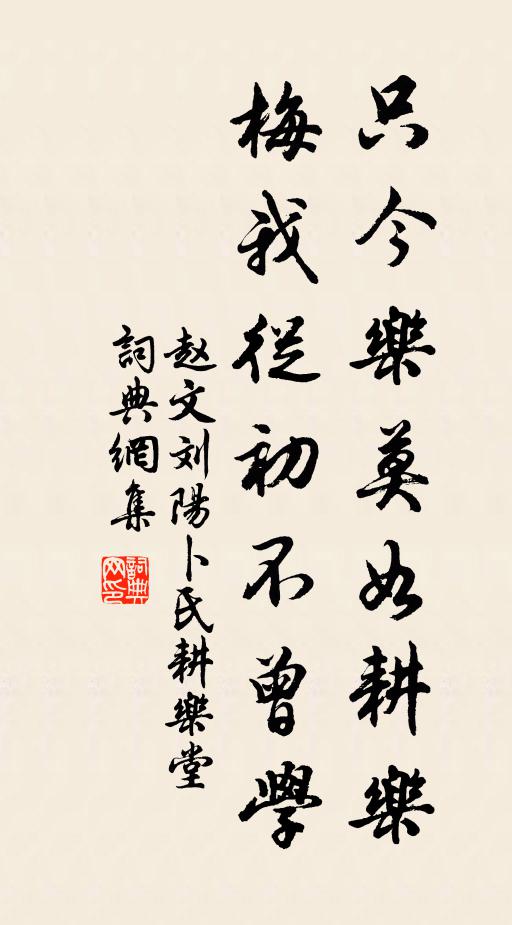 只今樂莫如耕樂
梅我從初不曾學
赵文刘陽卜氏耕樂堂
詞典網集
詞典网印